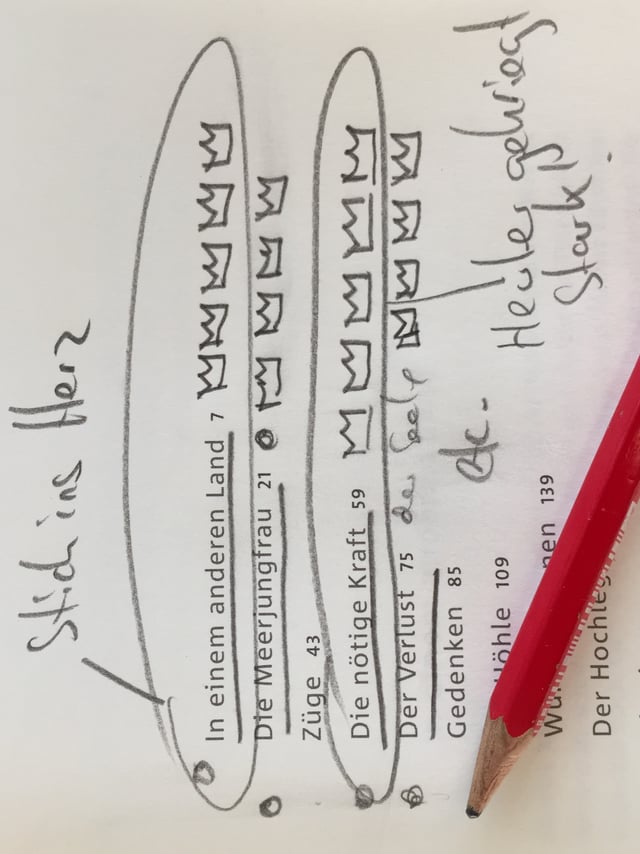 Stich ins Herz
In einem anderen Land 7
Die Meerjungfrau 21
Züge 43
Die nötige Kraft 59
Der Verlust 75 der Seele
Gedenken 85
Höhle 109
nen 139
Der Hochleg
etc.
Heules gekriegt
Stark!